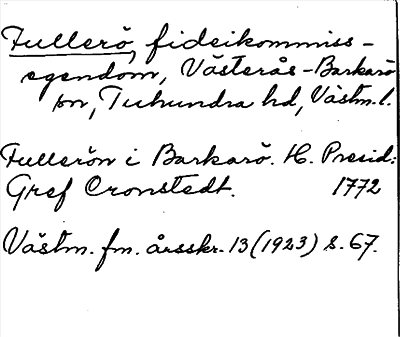 Fullerö, fideikommiss-
egendom, Västerås-Barkarö
sn, Tuhundra hd, Västm. l.
Fullerön i Barkarö. H. Presid:
Gref Cronstedt. 1772
Västm. fm. årsskr. 13 (1923) s. 67.